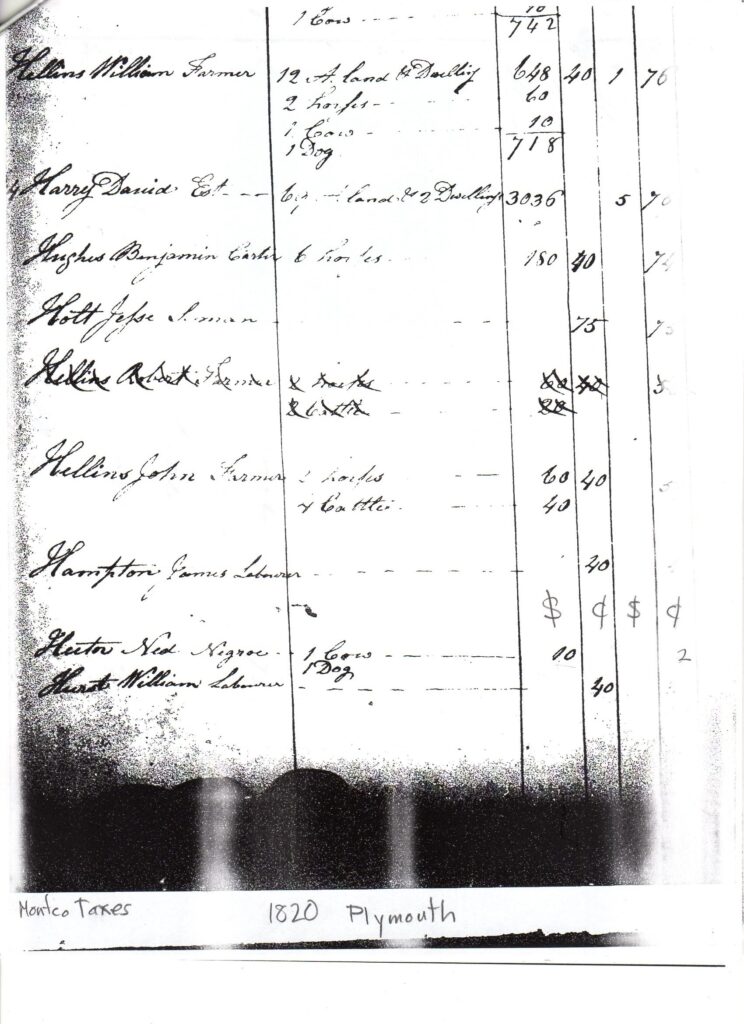 1 Cow 10
742
Hellins William Farmer 12 A. land & Dwelling 648 40 1 76
2 horses 60
1 Cow 10
1 Dog 718
Harry David Est. land & 2 Dwellings 3036 5
Hughes Benjamin Carter 6 horses 180 40
Holt Jesse 75
Hellins Robert Farmer 2 horses 60 40
20
Hellins John Farmer 2 horses 60 40
4 Cattle 40
Hampton James Labourer 40
$ ¢ $ ¢
Hector Ned Negroe 1 Cow 10 2
1 Dog
Hurst William Labourer 40
Montco Taxes 1820 Plymouth